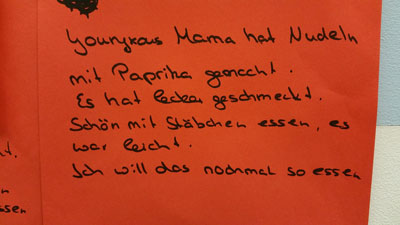 Younykous Mama hat Nudeln
mit Paprika gemacht.
Es hat lecker geschmeckt.
Schön mit Stäbchen essen, es
war leicht.
Ich will das nochmal so essen